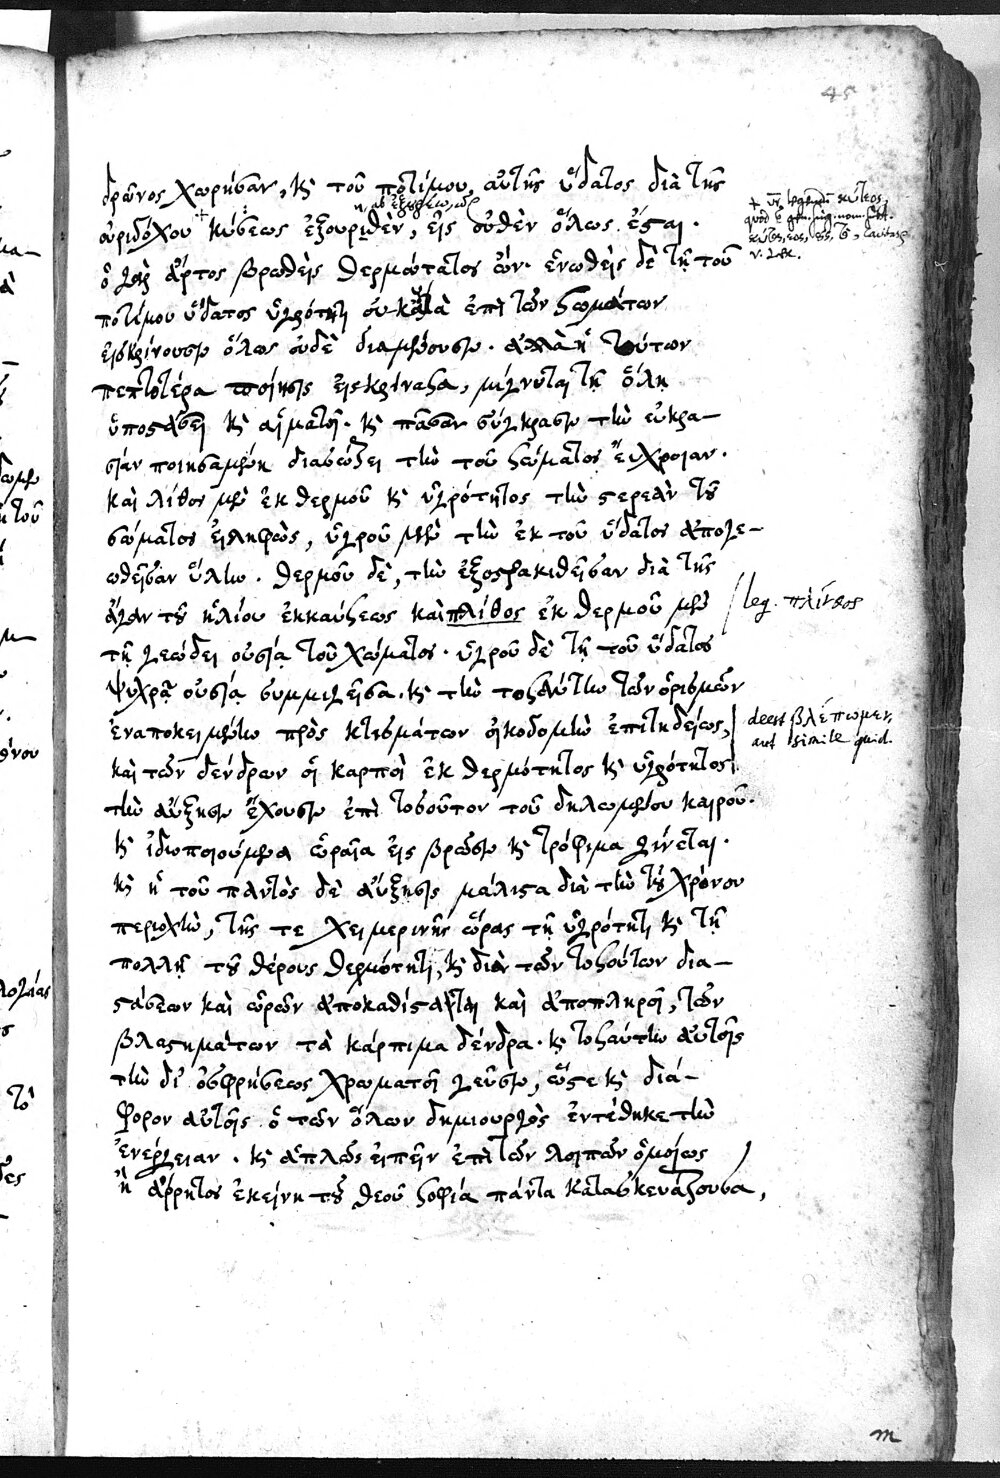 45
δρῶνος χωρήσαν, κὶ τοῦ ποτίμου αὐτῆς ὕδατος διὰ τῆς
οὐριδόχου + κύσεως ἐξουριθὲν, εἰς οὐθὲν ὅλως ἔσται.
ὁ γὰρ ἄρτος βρωθεὶς θερμότατος ὤν. ἑνωθεὶς δὲ τῇ τοῦ
ποτίμου ὕδατος ὑγρότητι οὐ κατὰ ἐπὶ τῶν σωμάτων
εἰσκρίνουσιν ὅλως οὐδὲ διαμένουσιν. ἀλλὰ ἡ τούτων
πεπτοτέρα ποίησις εἰσκρίνασα, μίγνυται τῇ ὅλῃ
ὑποστάσει κὶ αἱματοῖ. κὶ πᾶσαν σύγκρασιν τὴν εὐκρα-
σίαν ποιησαμένη διασώζει τὴν τοῦ σώματος εὔχροιαν.
καὶ λίθος μὲν ἐκ θερμοῦ κὶ ὑγρότητος τὴν στερεὰν τοῦ
σώματος εἰληφὼς, ὑγροῦ μὲν τὴν ἐκ τοῦ ὕδατος ἀπογε-
ωθεῖσαν ὕλην. θερμοῦ δὲ, τὴν ἐξοστρακιθεῖσαν διὰ τῆς
ἄγαν τοῦ ἡλίου ἐκκαύσεως καὶ πλίθος ἐκ θερμοῦ μὲν
leg. πλίνθος
τῇ γεώδει οὐσίᾳ τοῦ χώματος. ὑγροῦ δὲ τῇ τοῦ ὕδατος
ψυχρᾷ οὐσίᾳ συμμιγεῖσα. κὶ τὴν τοσαύτην τῶν ὁρισμῶν
ἐναποκειμένην πρὸς κτισμάτων οἰκοδομὴν ἐπιτηδείως,
deest βλέπωμεν,
aut simile quid.
καὶ τῶν δένδρων οἱ καρποὶ ἐκ θερμότητος κὶ ὑγρότητος
τὴν αὔξησιν ἔχουσιν ἐπὶ τοσοῦτον τοῦ δηλωμένου καιροῦ.
κὶ ἰδιοποιούμενα ὡραῖα εἰς βρῶσιν κὶ τρόφιμα γίνεται.
κὶ ἡ τοῦ παντὸς δὲ αὔξησις μάλιστα διὰ τὴν τοῦ χρόνου
περιοχὴν, τῆς τε χειμερινῆς ὥρας τῇ ὑγρότητι κὶ τῇ
πολλῇ τοῦ θέρους θερμότητι, κὶ διὰ τῶν τοσούτων δια-
στάσεων καὶ ὡρῶν ἀποκαθίσταται καὶ ἀποπληροῖ, τῶν
βλαστημάτων τὰ κάρπιμα δένδρα. κὶ τοσαύτην αὐτοῖς
τὴν δι' ὀσφρήσεως χρωματοῖ γεῦσιν, ὥστε κὶ διά-
φορον αὐτοῖς ὁ τῶν ὅλων δημιουργὸς ἐντέθηκε τὴν
ἐνέργειαν. κὶ ἁπλῶς εἰπεῖν ἐπὶ τῶν λοιπῶν ὁμοίως
ἡ ἄρρητος ἐκείνη τοῦ θεοῦ σοφία πάντα κατασκευάζουσα,
m